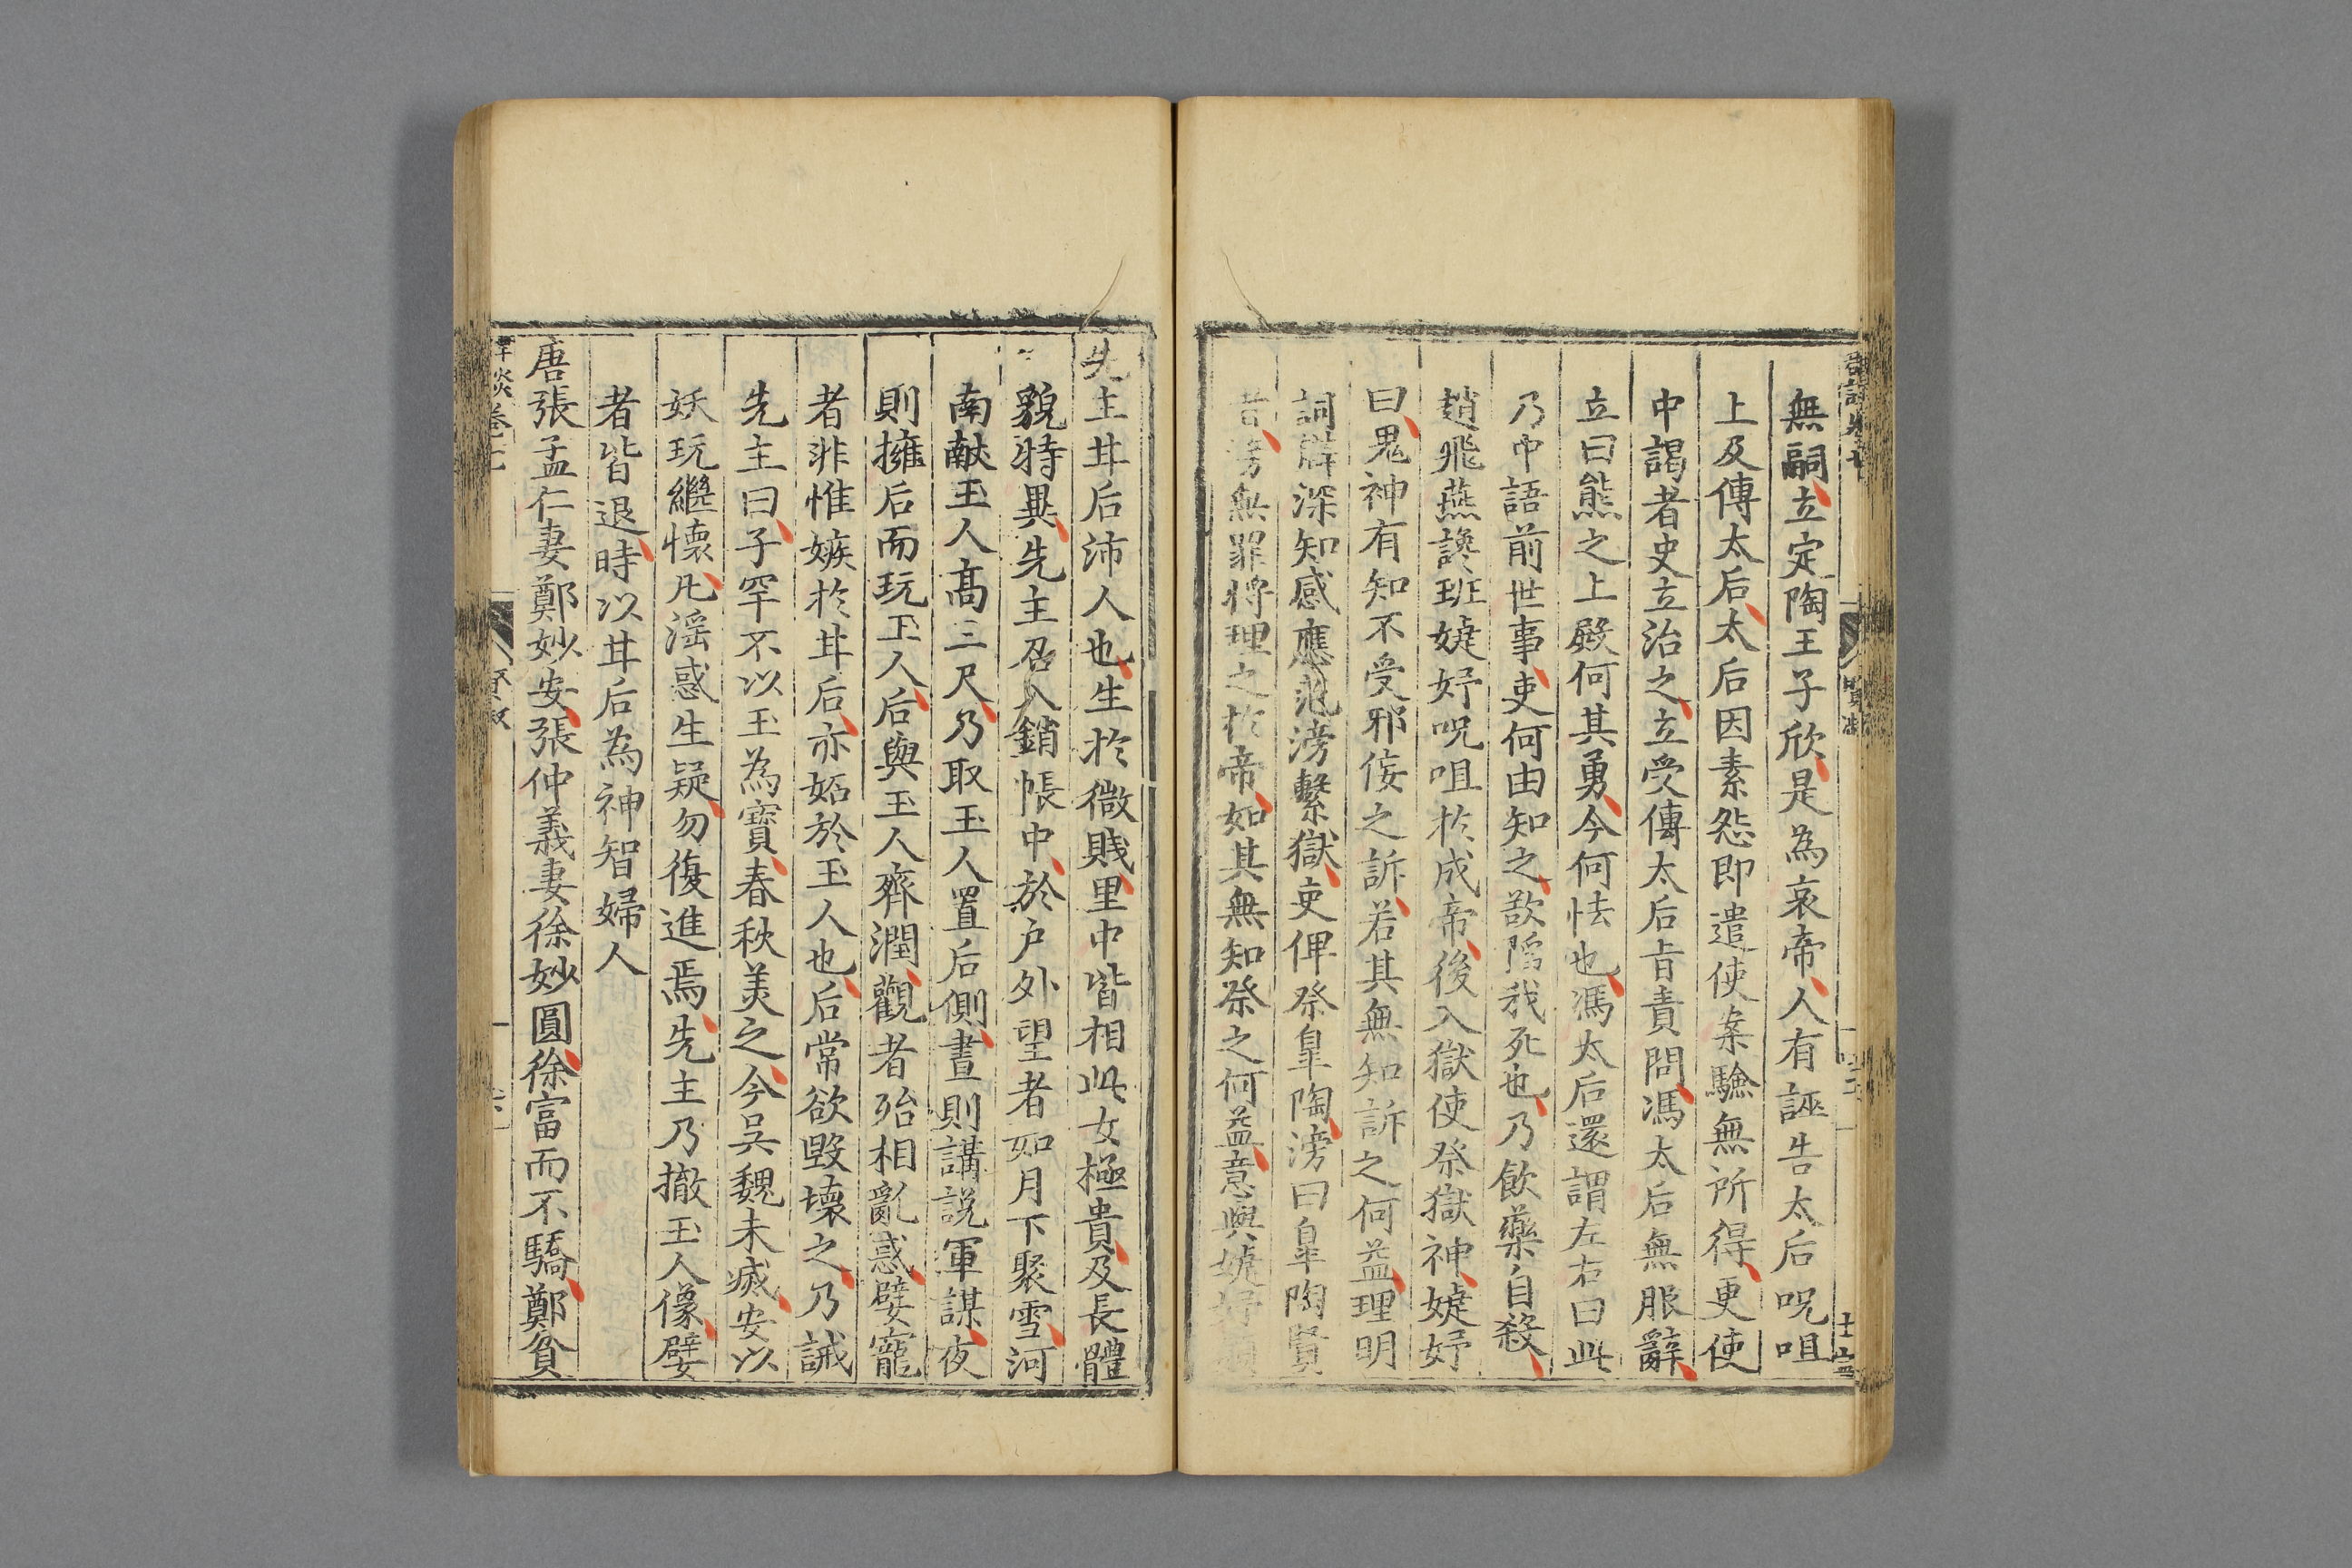 無嗣立定陶王子欣是為哀帝人有誣告太后呪咀
上及傳太后太后因素怨即遣使案驗無所得更使
中謁者史立治之立受傳太后旨責問馮太后無服辭
立曰熊之上殿何其勇今何怯也馮太后還謂左右曰此
乃中語前世事吏何由知之欲陷我死也乃飲藥自殺
趙飛燕讒班婕妤呪咀於成帝後入獄使祭獄神婕妤
曰鬼神有知不受邪侫之訴若其無知訴之何益理明
詞辭深知感應范滂繫獄吏俾祭皐陶滂曰皐陶賢
者滂無罪將理之於帝如其無知祭之何益意與婕妤
先主甘后沛人也生於微賤里中皆相此女極貴及長體
貌特異先主召入銷帳中於户外望者如月下聚雪河
南獻玉人高三尺乃取玉人置后側晝則講說軍謀夜
則擁后而玩玉人后與玉人齊潤觀者殆相亂惑嬖寵
者非惟嫉於甘后亦妬於玉人也后常欲毀壞之乃誡
先主曰子罕不以玉為寶春秋美之今吳魏未滅安以
妖玩繼懷凡滛惑生疑勿復進焉先主乃撤玉人像嬖
者皆退時以甘后為神智婦人
唐張孟仁妻鄭妙安張仲義妻徐妙圓徐富而不驕鄭貧